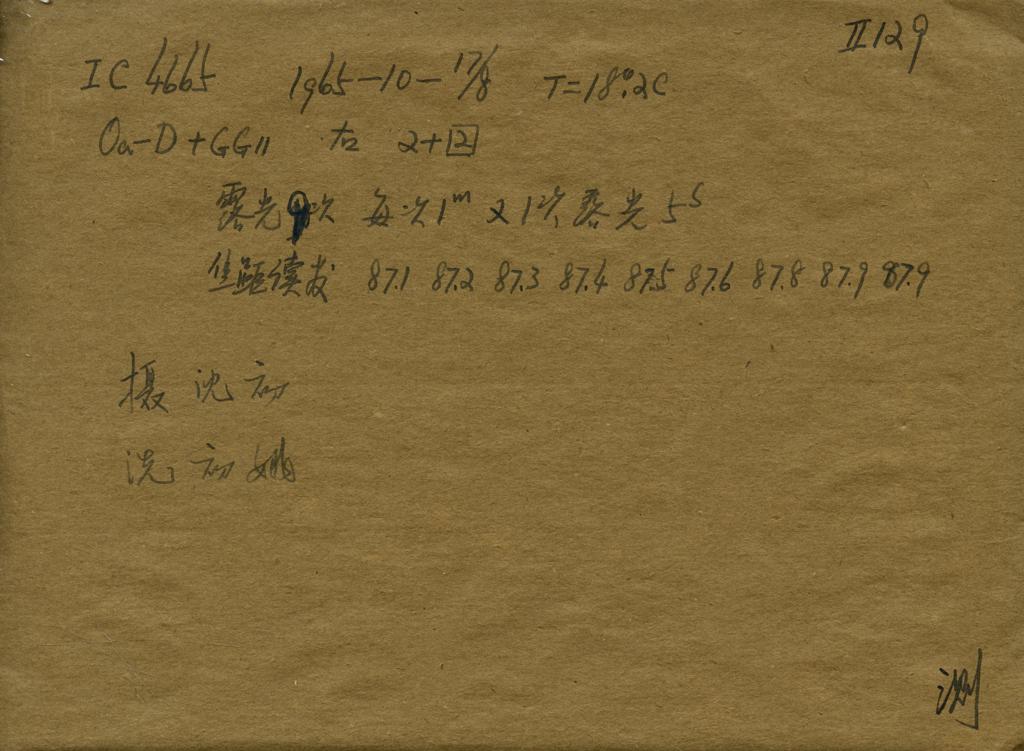 II 129
IC 4665 1965-10-17/8 T=18°.2C
Oa-D+GG11 右 2+12
露光9次 每次1m 又1次露光5s
焦距读数 87.1 87.2 87.3 87.4 87.5 87.6 87.8 87.9 87.9
摄 沈 初
洗 初
测